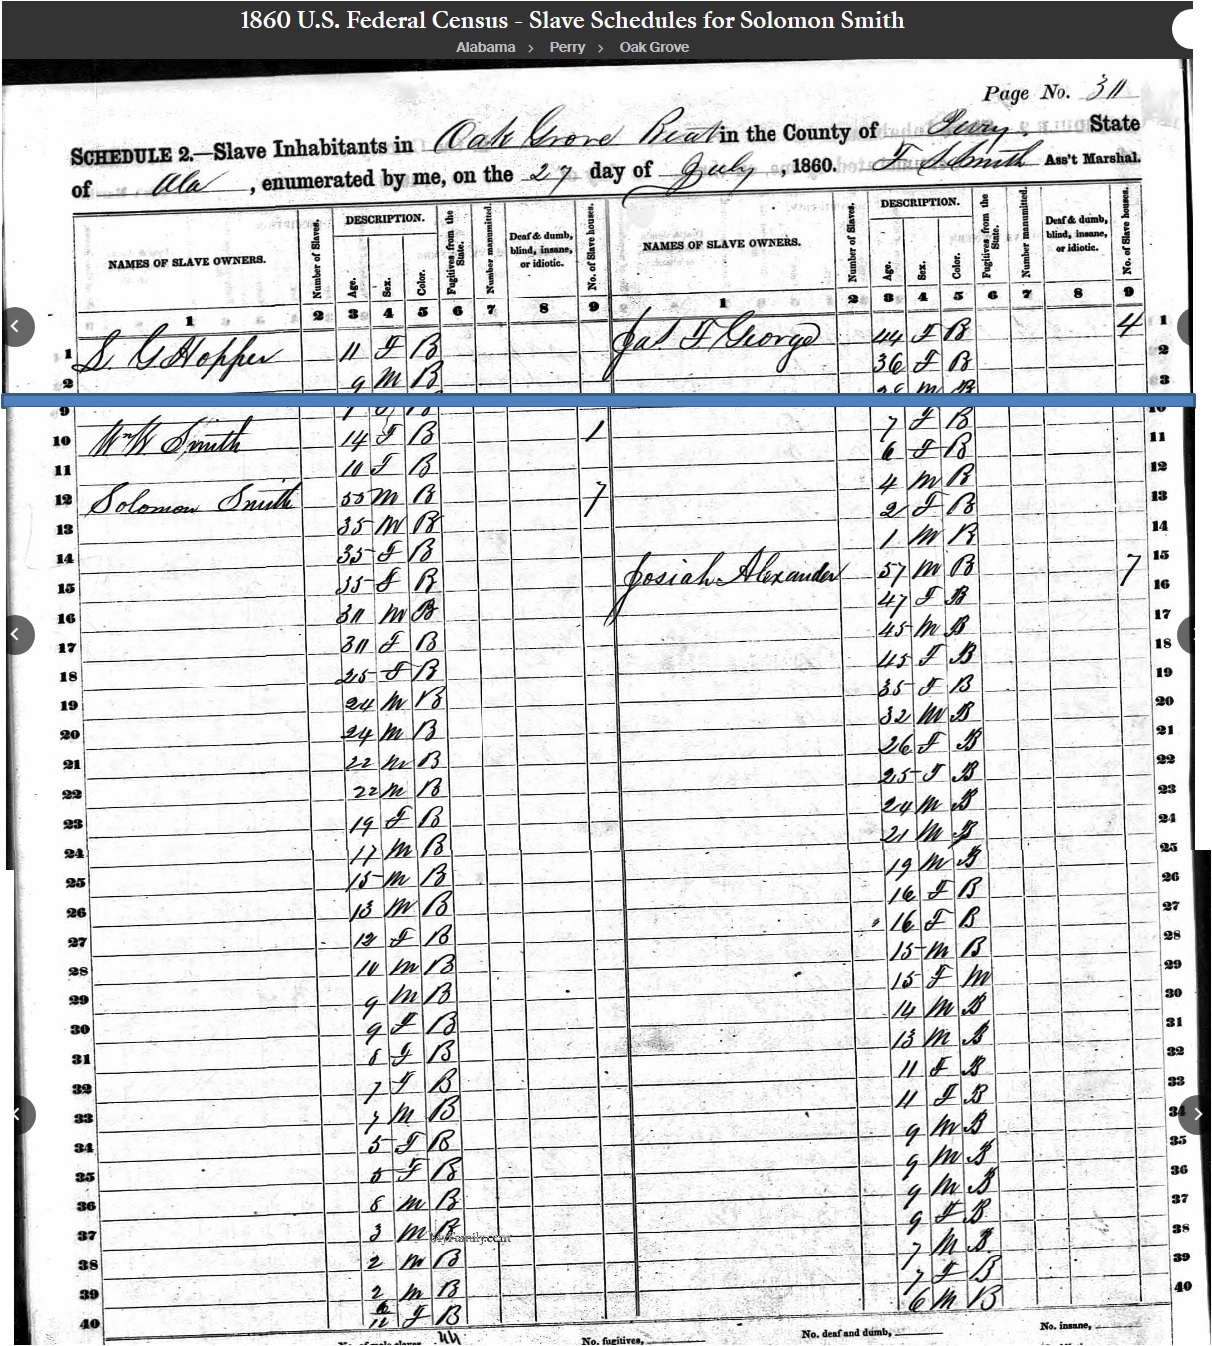 1860 U.S. Federal Census - Slave Schedules for Solomon Smith
Alabama > Perry > Oak Grove
Page No. 311
SCHEDULE 2.—Slave Inhabitants in Oak Grove Beat in the County of Perry State
of Ala, enumerated by me, on the 27 day of July, 1860. Smith Ass't Marshal.
NAMES OF SLAVE OWNERS. Number of Slaves. DESCRIPTION. Age. Sex. Color. Fugitives from the State. Number manumitted. Deaf & dumb, blind, insane, or idiotic. No. of Slave houses. NAMES OF SLAVE OWNERS. Number of Slaves. DESCRIPTION. Age. Sex. Color. Fugitives from the State. Number manumitted. Deaf & dumb, blind, insane, or idiotic. No. of Slave houses.
1 2 3 4 5 6 7 8 9 1 2 3 4 5 6 7 8 9
1 S. G Hopper 11 F B Jas. F George 44 F B 4 1
2 9 M B 36 F B 2
M B 3
9 7 F B 10
10 Wm W Smith 14 F B 1 6 F B 11
11 10 F B 4 M B 12
12 Solomon Smith 55 M B 7 2 F B 13
13 35 M B 1 M B 14
14 35 F B Josiah Alexander 57 M B 7 15
15 35 F B 47 F B 16
16 30 M B 45 M B 17
17 30 F B 45 F B 18
18 25 F B 35 F B 19
19 24 M B 32 M B 20
20 24 M B 26 F B 21
21 22 M B 25 F B 22
22 22 M B 24 M B 23
23 19 F B 21 M B 24
24 17 M B 19 M B 25
25 15 M B 16 F B 26
26 13 M B 16 F B 27
27 12 F B 15 M B 28
28 10 M B 15 F M 29
29 9 M B 14 M B 30
30 9 F B 13 M B 31
31 8 F B 11 F B 32
32 7 F B 11 F B 33
33 7 M B 9 M B 34
34 5 F B 9 M B 35
35 5 F B 9 M B 36
36 8 M B 9 F B 37
37 3 M B 7 M B 38
38 2 M B 7 F B 39
39 2 M B 6 M B 40
40 6/12 F B
MyFamily.com
No. of male slaves, 44 No. fugitives, No. deaf and dumb, No. insane,